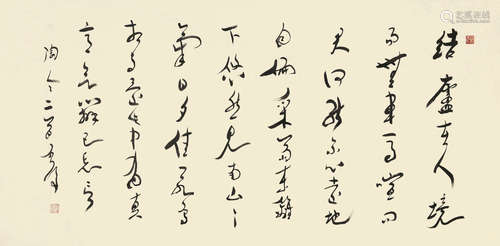 结庐在人境
而无车马喧问
君何能尔心远地
自偏采菊东篱
下悠然见南山山
气日夕佳飞鸟
相与还此中有真
意欲辩已忘言
陶令二首